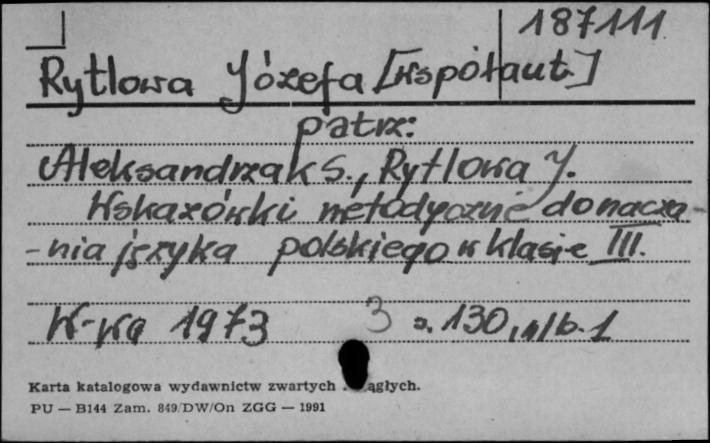 187111
Rytlowa Józefa [współaut.]
patrz:
Aleksandrzak S., Rytlowa J.
Wskazówki metodyczne do naucza-
-nia języka polskiego w klasie III.
W-wa 1973 3 s. 130, nlb. 1
Karta katalogowa wydawnictw zwartych ągłych.
PU — B144 Zam. 849/DW/On ZGG — 1991